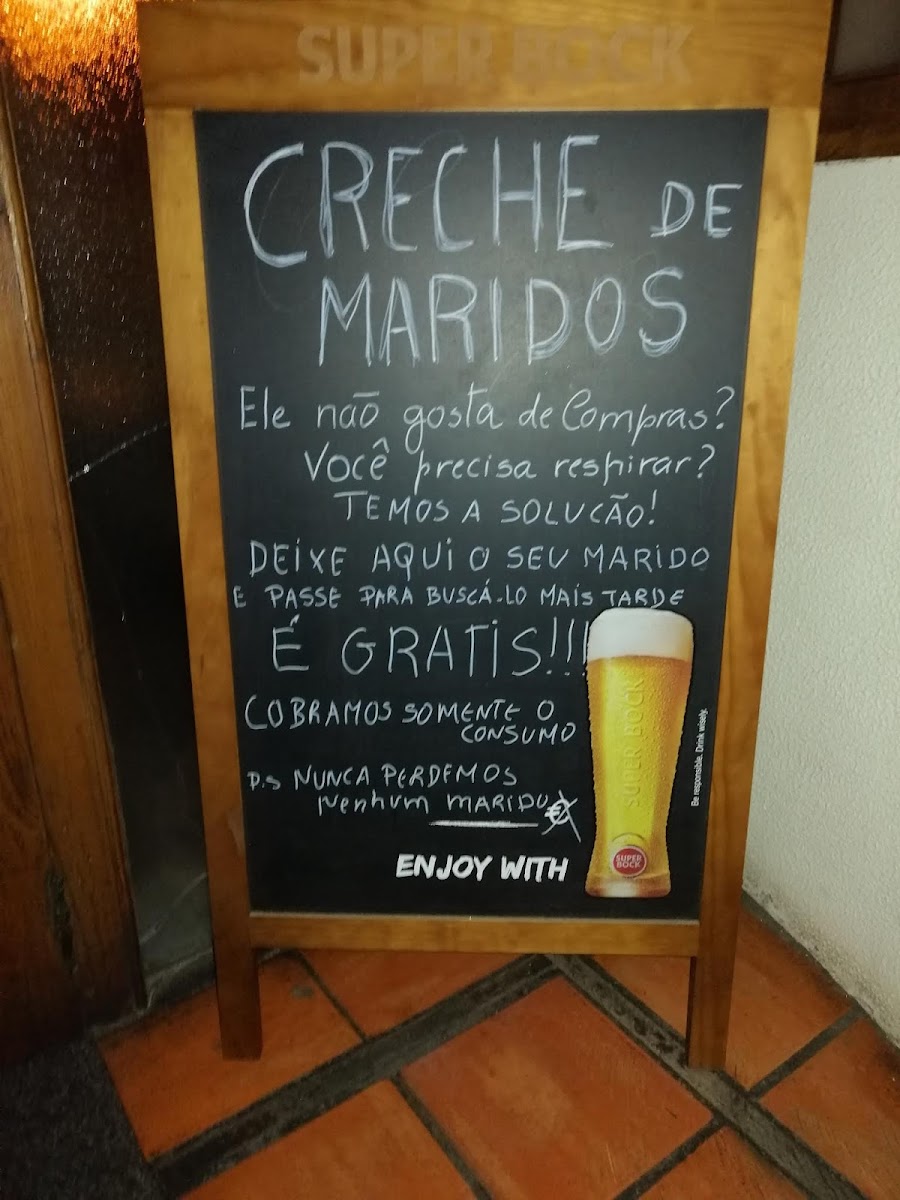 SUPER BOCK
CRECHE DE
MARIDOS
Ele não gosta de Compras?
Você precisa respirar?
TEMOS A SOLUCÃO!
DEIXE AQUI O SEU MARIDO
E PASSE PARA BUSCÁ-LO MAIS TARDE
É GRATIS!!!
COBRAMOS SOMENTE O
CONSUMO
P.S NUNCA PERDEMOS
Nenhum MARIDO
€
ENJOY WITH
SUPER BOCK
SUPER
BOCK
Be responsible. Drink wisely.